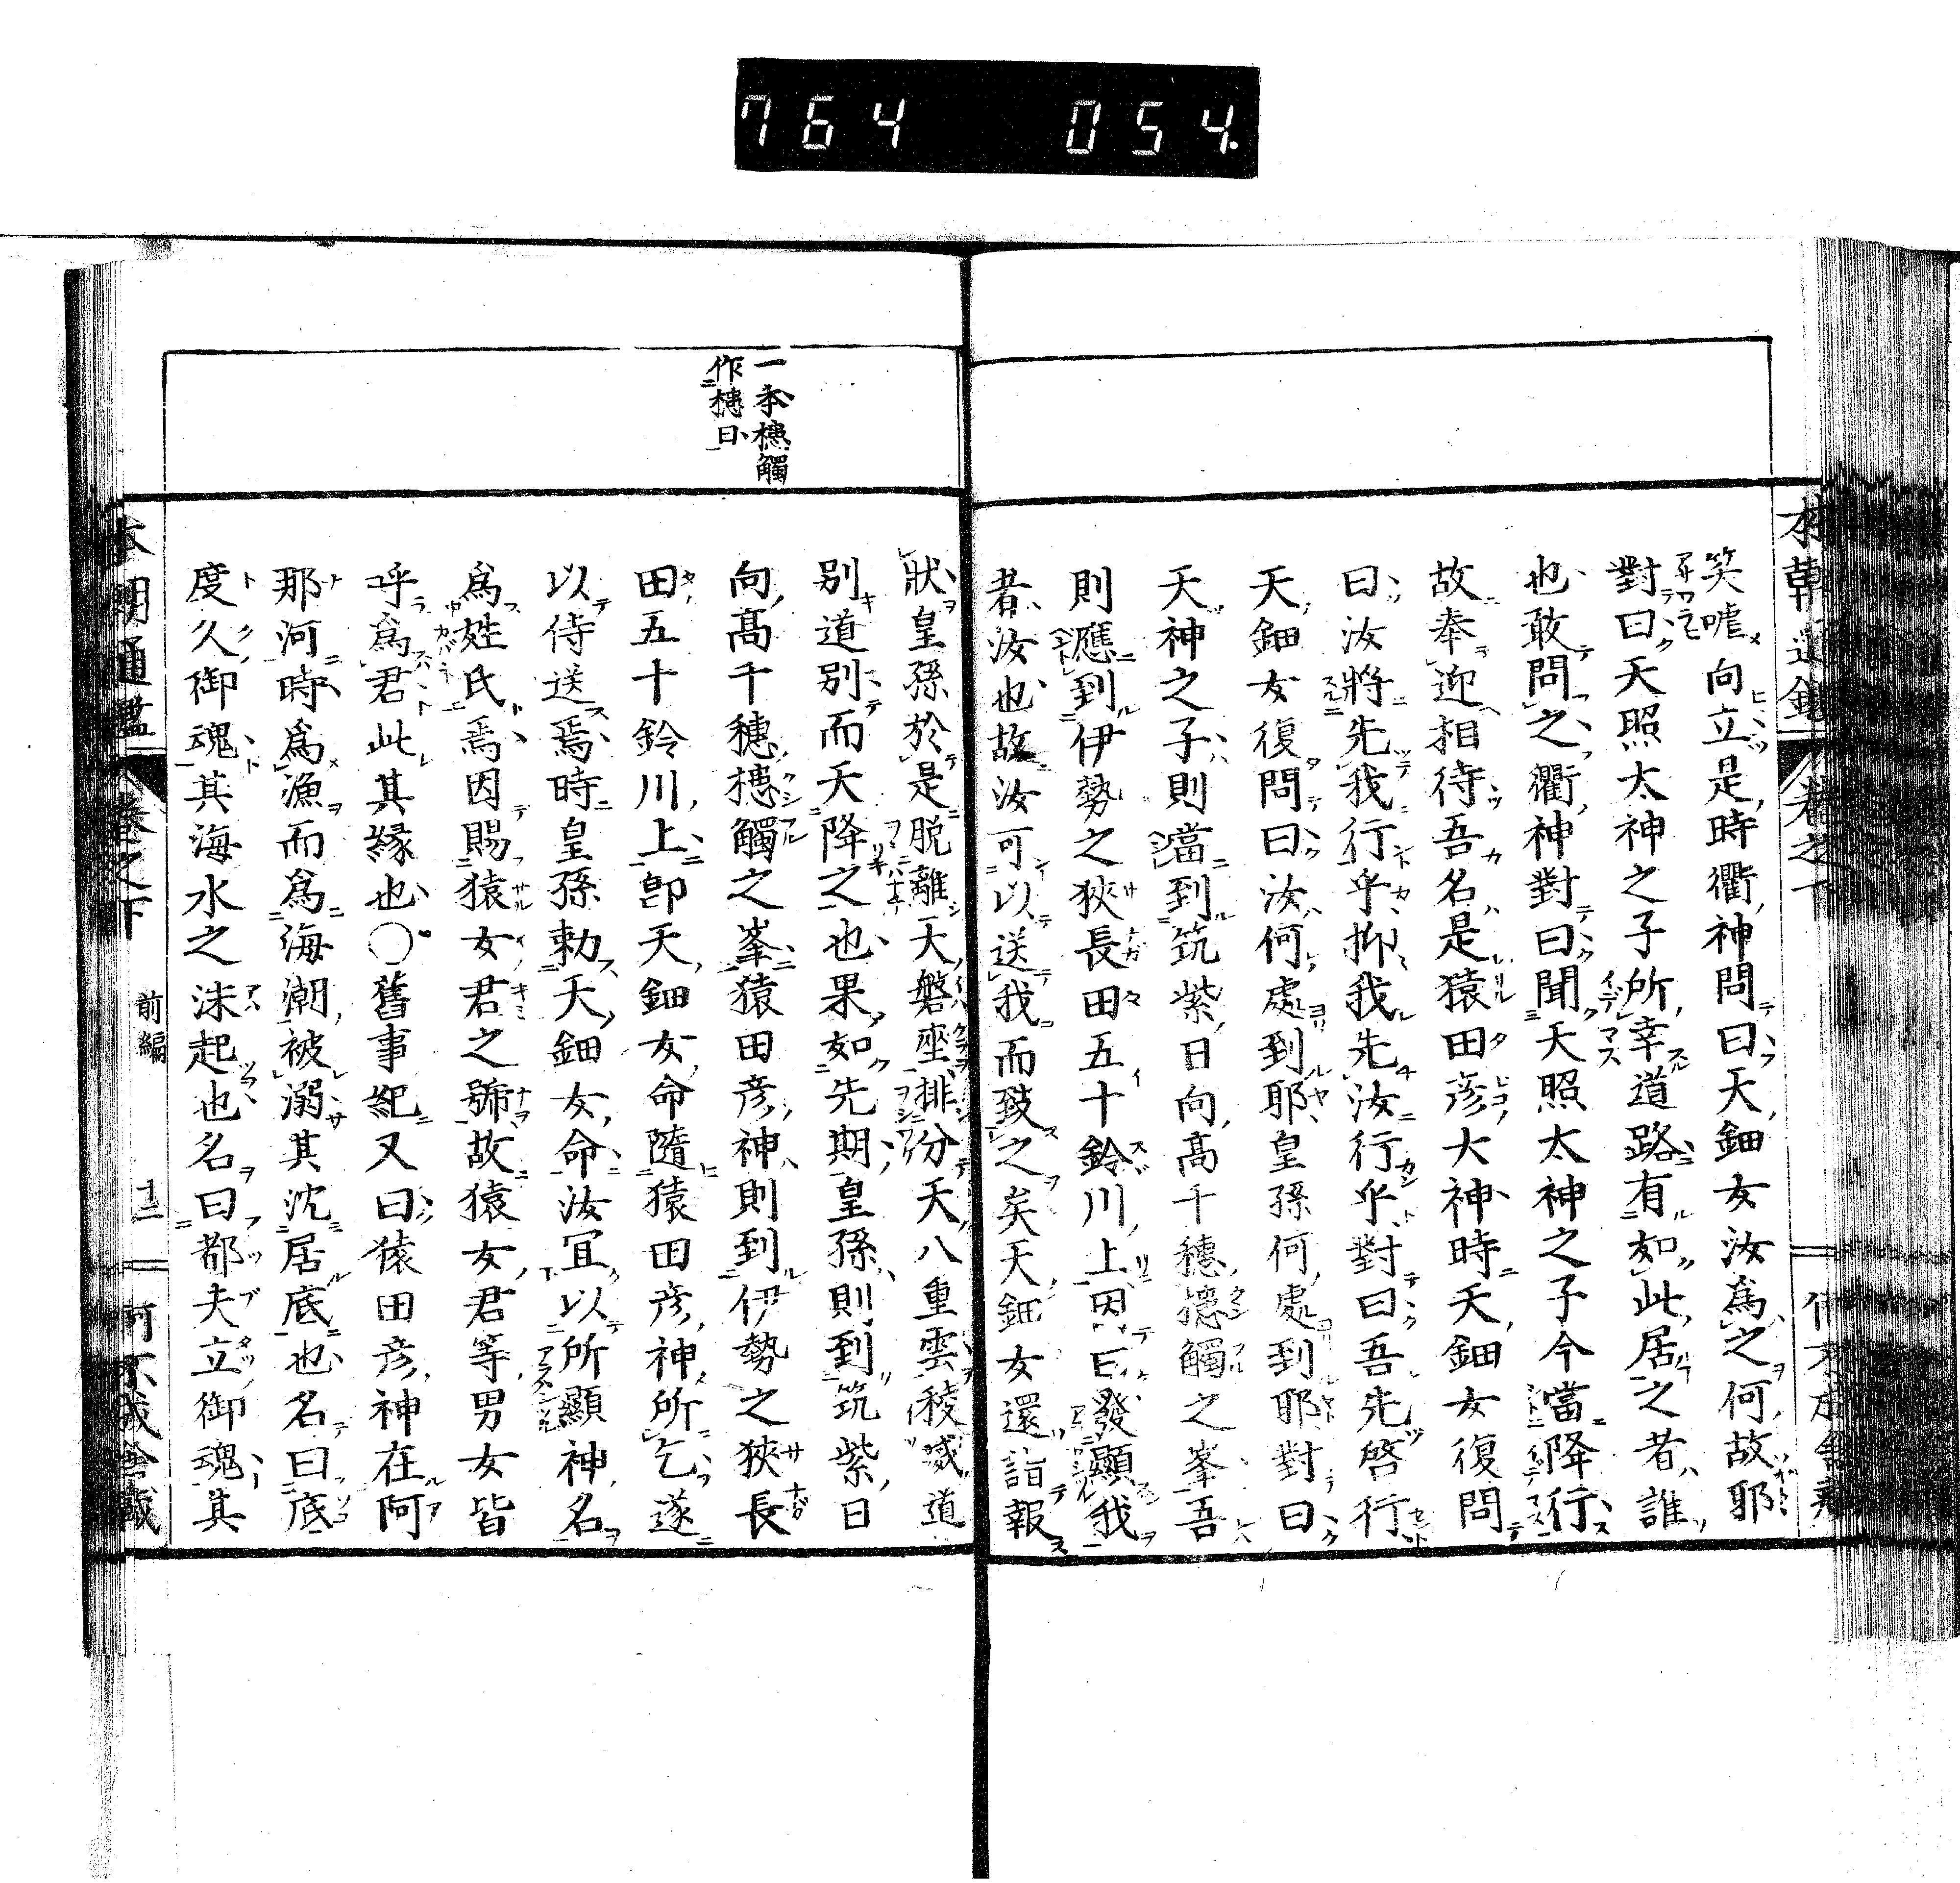 764 054.
笑噱向立是時衢神問曰天鈿女汝爲之何故耶
對曰天照太神之子所幸道路有如此居之者誰
也敢問之衢神對曰聞天照太神之子今當降行
故奉迎相待吾名是猿田彦大神時天鈿女復問
曰汝將先我行乎抑我先汝行乎對曰吾先啓行
天鈿女復問曰汝何處到耶皇孫何處到耶對曰
天神之子則當到筑紫日向高千穗槵觸之峯吾
則應到伊勢之狹長田五十鈴川上因曰發顯我
者汝也故汝可以送我而致之矣天鈿女還詣報
一本槵觸
作槵日
狀皇孫於是脱離天磐座排分天八重雲稜威道
別道別而天降之也果如先期皇孫則到筑紫日
向高千穗槵觸之峯猿田彦神則到伊勢之狹長
田五十鈴川上卽天鈿女命隨猿田彦神所乞遂
以侍送焉時皇孫勅天鈿女命汝宜以所顯神名
爲姓氏焉因賜猿女君之號故猿女君等男女皆
呼爲君此其縁也○舊事紀又曰猿田彦神在阿
那河時爲漁而爲海潮被溺其沈居底也名曰底
度久御魂其海水之沫起也名曰都夫立御魂其
本朝通鑑 卷之下 前編 十二